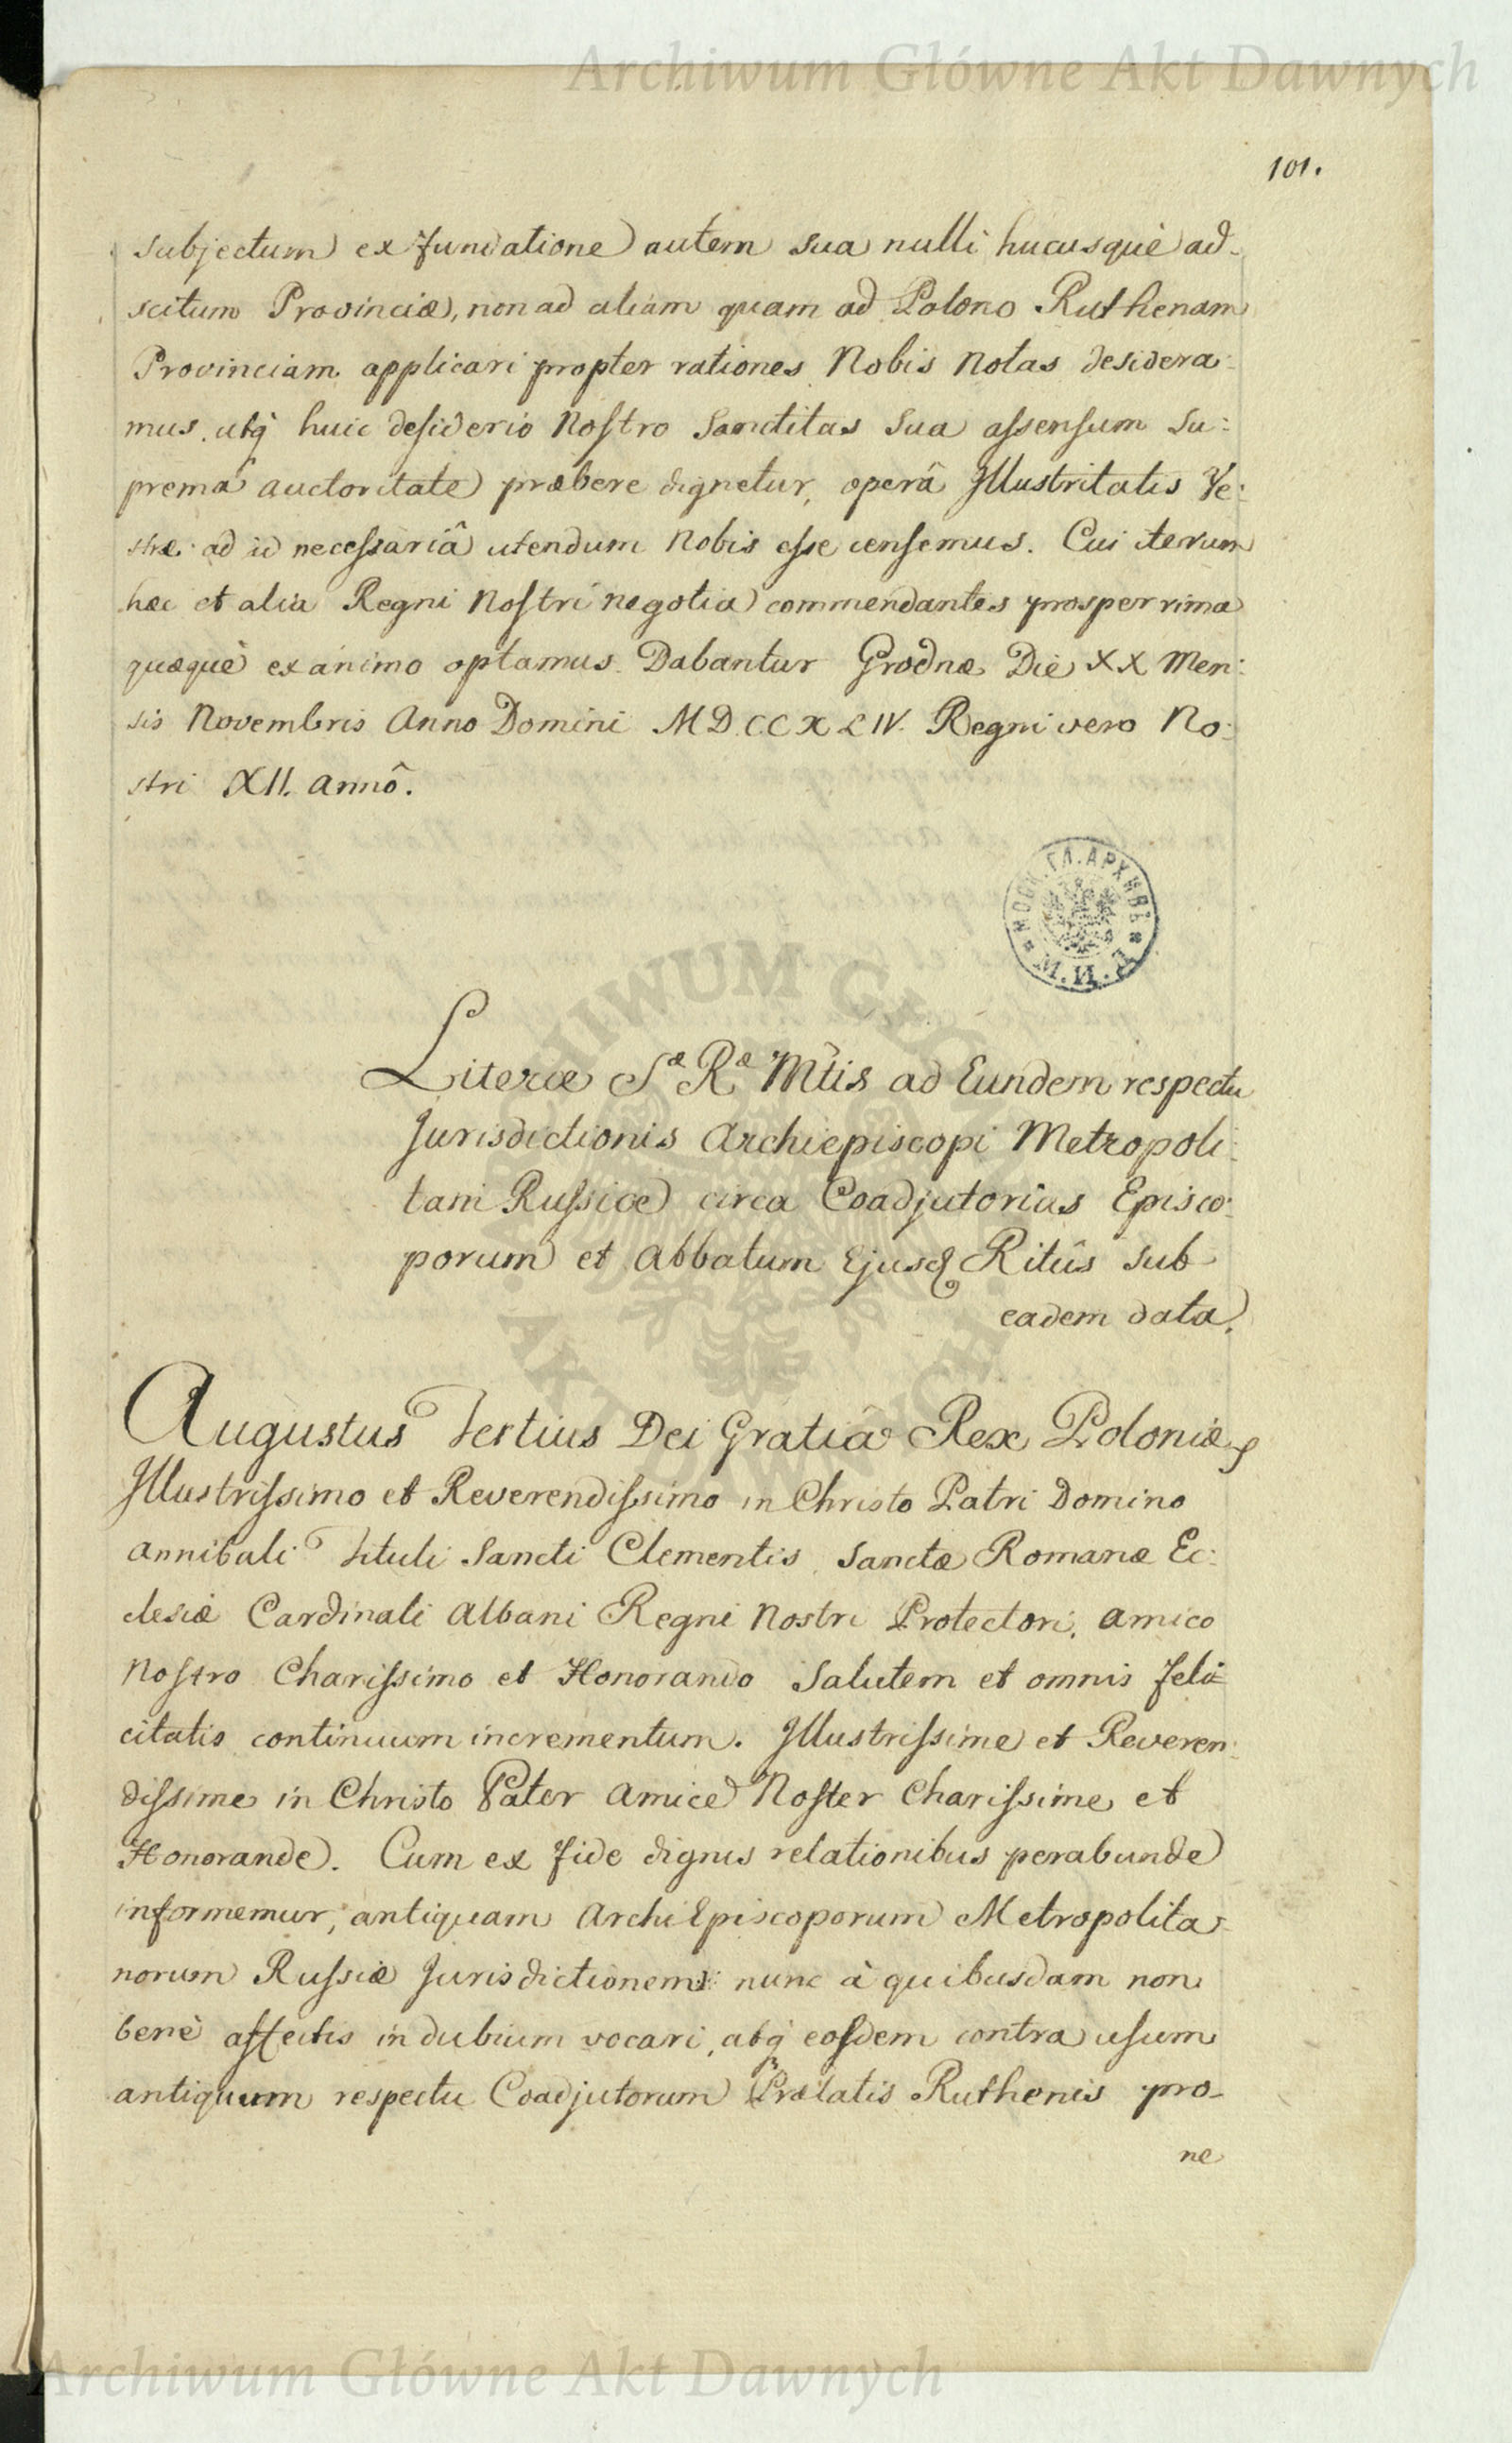 Archiwum Główne Akt Dawnych
101.
subjectum ex fundatione autem sua nulli hucusquè ad-
scitum Provinciæ, non ad aliam quam ad Polono Ruthenam
Provinciam applicari propter rationes Nobis Notas desidera:
mus, utq́ huic desiderio Nostro Sanctitas Sua assensum Su:
premâ auctoritate præbere dignetur, operâ Illustritatis Ve:
stræ ad id necessariâ utendum Nobis esse censemus. Cui iterum
hæc et alia Regni Nostri negotia commendantes prosperrima
quæquè ex animo optamus. Dabantur Grodnæ Die XX Men:
sis Novembris Anno Domini MDCCXLIV. Regni vero No:
stri XII. annô.
МОСК. ГЛ. АРХИВЪ * М. И. Д. *
Literæ Sæ Ræ Mtis ad Eundem respectu
Jurisdictionis Archiepiscopi Metropoli:
tani Russiæ circa Coadjutorias Episco:
porum et Abbatum Ejusq Ritûs sub
eadem data.
Augustus Tertius Dei Gratiâ Rex Poloniæ
Illustrissimo et Reverendissimo in Christo Patri Domino
Annibali Tituli Sancti Clementis Sanctæ Romanæ Ec:
clesiæ Cardinali Albani Regni Nostri Protectori, Amico
Nostro Charissimo et Honorando Salutem et omnis feli=
citatis continuum incrementum. Illustrissime et Reveren:
dissime in Christo Pater Amice Noster Charissime et
Honorande. Cum ex fide dignis relationibus perabunde
informemur, antiquam ArchiEpiscoporum Metropolita:
norum Russiæ Jurisdictionem nunc à quibusdam non
benè affectis in dubium vocari, atq́ eosdem contra usum
antiquum respectu Coadjutorum Prælatis Ruthenis pro-
ne
ARCHIWUM GŁÓWNE AKT DAWNYCH
Archiwum Główne Akt Dawnych